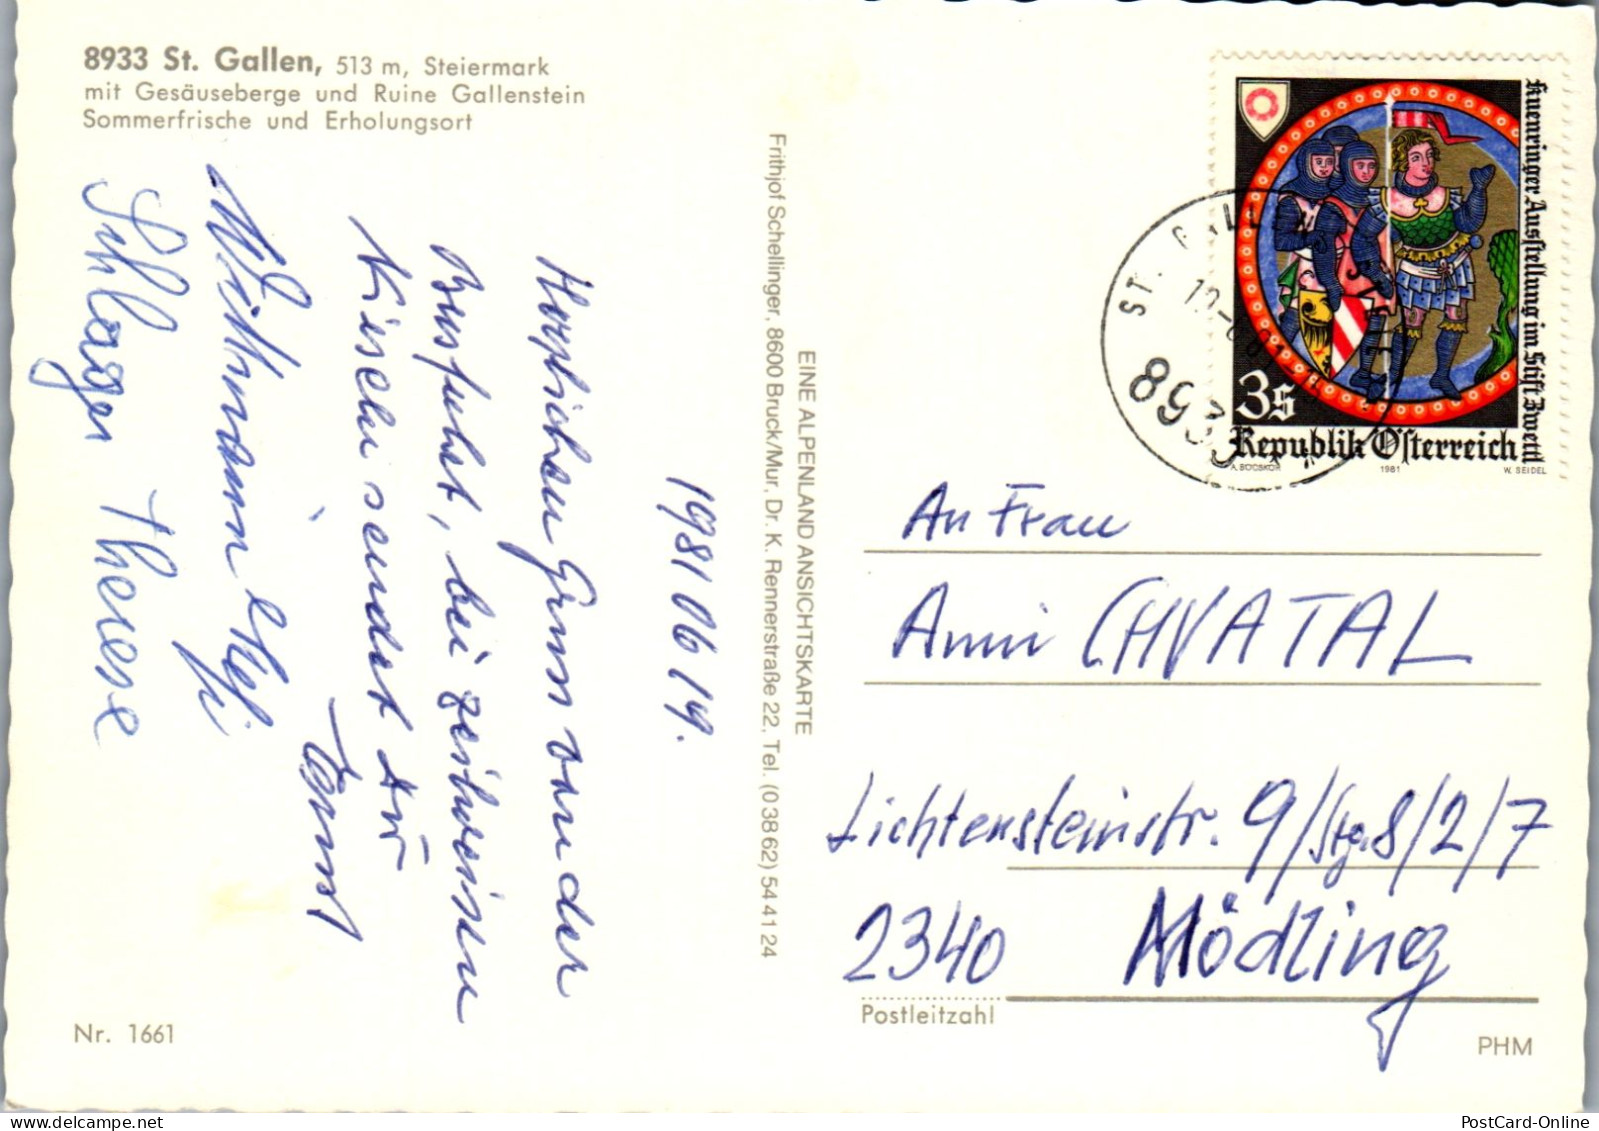 8933 St. Gallen, 513 m, Steiermark
mit Gesäuseberge und Ruine Gallenstein
Sommerfrische und Erholungsort
1981 06 14.
Herzlichen Gruss von der
Busfahrt, bei zeitweisen
Nieseln sendet Dir
Schlager Therese
Nr. 1661
EINE ALPENLAND ANSICHTSKARTE
Frithjof Schellinger, 8600 Bruck/Mur, Dr. K. Rennerstraße 22, Tel. (0 38 62) 54 41 24
Kuenringer Ausstellung im Stift Zwettl
3S
Republik Österreich
A. BÖCSKÖR 1981 W. SEIDEL
ST. GALLEN
8933
An Frau
Anni CHVATAL
Lichtensteinstr. 9/Stg.8/2/7
2340 Mödling
Postleitzahl
PHM
PostCard-Online